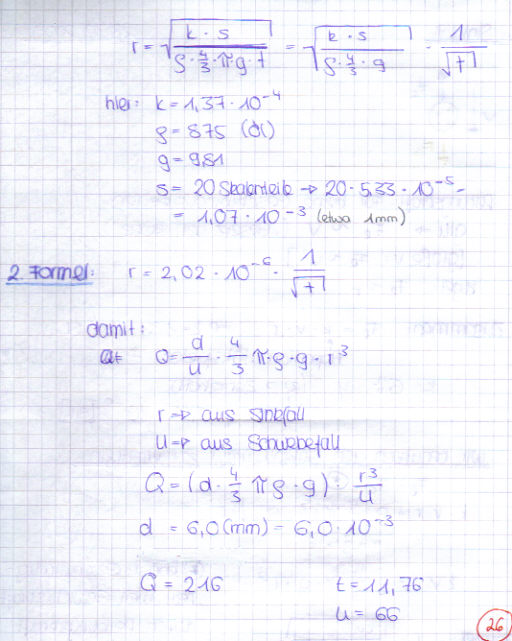 r = √(k · s / (ϱ · 4/3 · π g · t)) = √(k · s / (ϱ · 4/3 · g)) · 1/√t
hier: k = 1,37 · 10⁻⁴
ϱ = 875 (Öl)
g = 9,81
s = 20 Skalenteile → 20 · 5,33 · 10⁻⁵ -
= 1,07 · 10⁻³ (etwa 1mm)
2. Formel: r = 2,02 · 10⁻⁶ · 1/√t
damit:
Q = d/U · 4/3 π · ϱ · g · r³
r → aus Sinkfall
U → aus Schwebefall
Q = (d · 4/3 π ϱ · g) · r³/U
d = 6,0 (mm) = 6,0 · 10⁻³
Q = 216 t = 11,76
U = 66
26